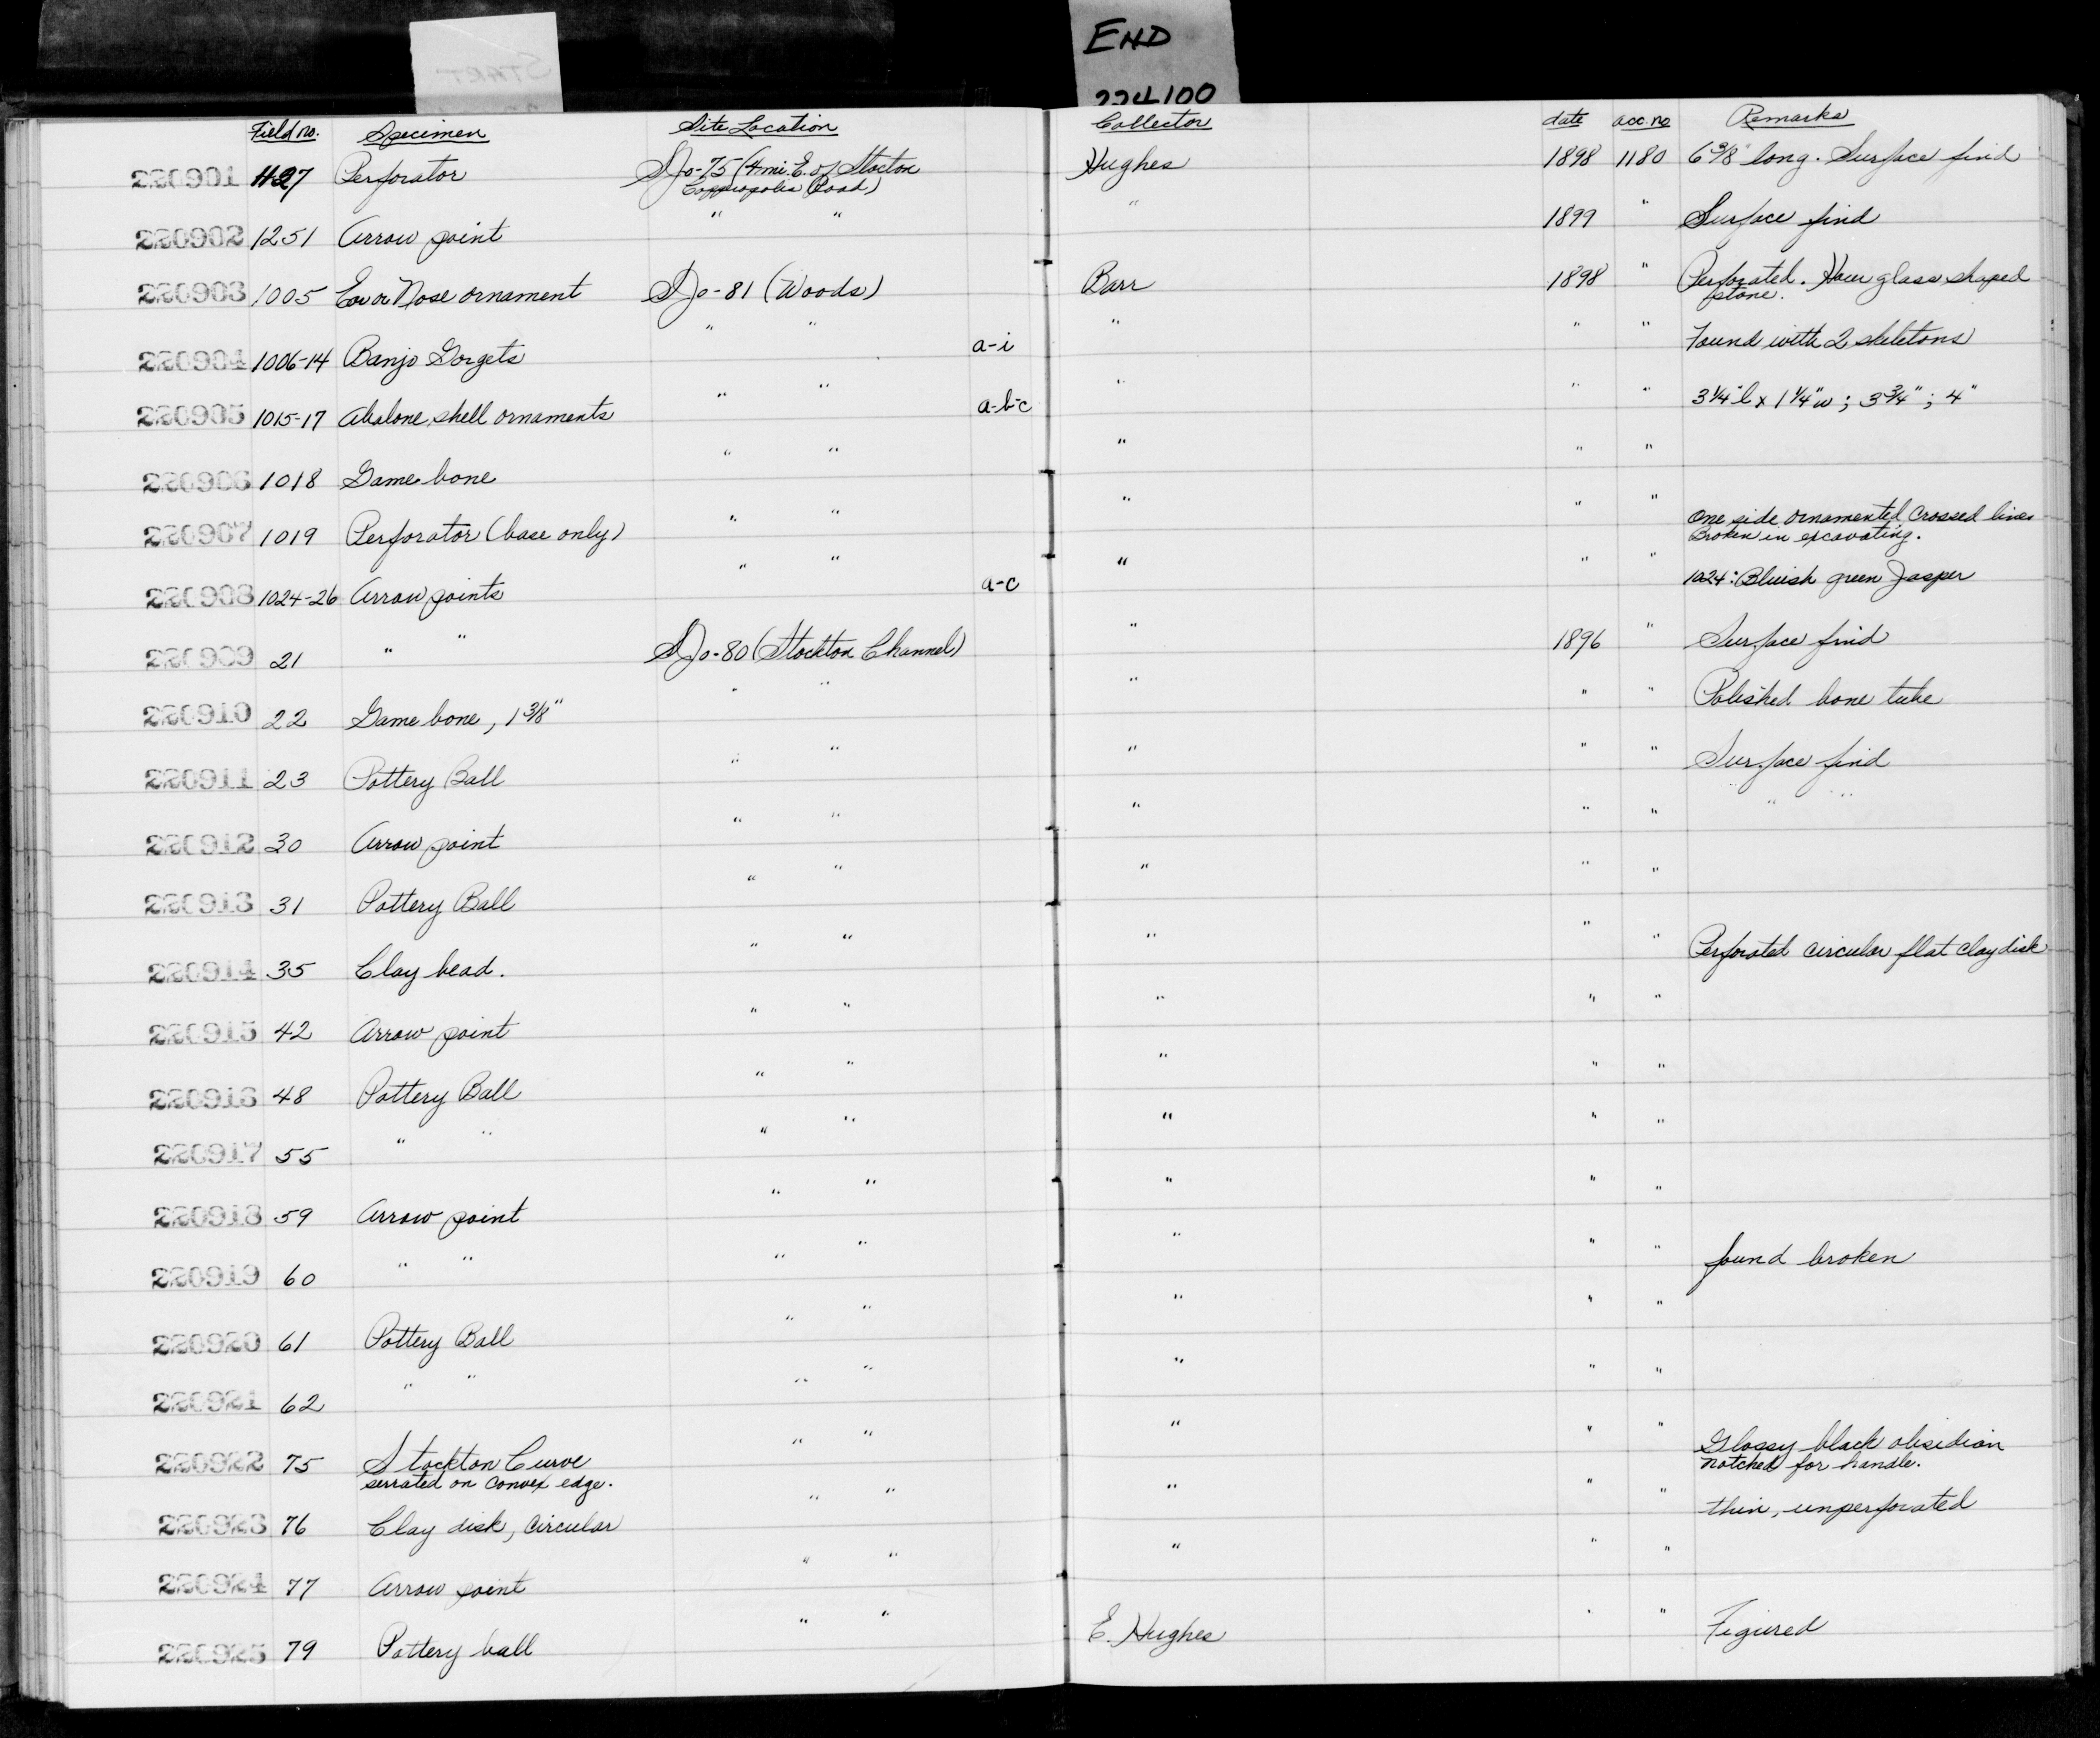 START
END
224100
Field no. Specimen Site Location Collector date acc. no Remarks
220901 1127 Perforator SJo-75 (4 mi. E. of Stocton Hughes 1898 1180 6 3/8" long. Surface find
Copperopolis Road)
220902 1251 Arrow point " " " 1899 " Surface find
220903 1005 Ear or Nose ornament SJo-81 (Woods) Barr 1898 " Perforated. Hour glass shaped
stone.
220904 1006-14 Banjo Gorgets " " a-i " " " Found with 2 skeletons
220905 1015-17 Abalone shell ornaments " " a-b-c " " " 3 1/4" l x 1 1/4" w ; 3 3/4" ; 4"
220906 1018 Game bone " " " " "
220907 1019 Perforator (base only) " " " " " One side ornamented crossed lines
Broken in excavating.
220908 1024-26 Arrow points " " a-c " " " 1024: Bluish green Jasper
220909 21 " " SJo-80 (Stockton Channel) " 1896 " Surface find
220910 22 Game bone, 1 3/8" " " " " " Polished bone tube
220911 23 Pottery Ball " " " " " Surface find
220912 30 Arrow point " " " " " " "
220913 31 Pottery Ball " " " " "
220914 35 Clay bead. " " " " " Perforated circular flat clay disk
220915 42 Arrow point " " " " "
220916 48 Pottery Ball " " " " "
220917 55 " " " " " " "
220918 59 Arrow point " " " " "
220919 60 " " " " " " " found broken
220920 61 Pottery Ball " " " " "
220921 62 " " " " " " "
220922 75 Stockton Curve " " " " " Glossy black obsidian
serrated on convex edge. notched for handle.
220923 76 Clay disk, circular " " " " " thin, unperforated
220924 77 Arrow point " " " " "
220925 79 Pottery ball " " E. Hughes " " Figured